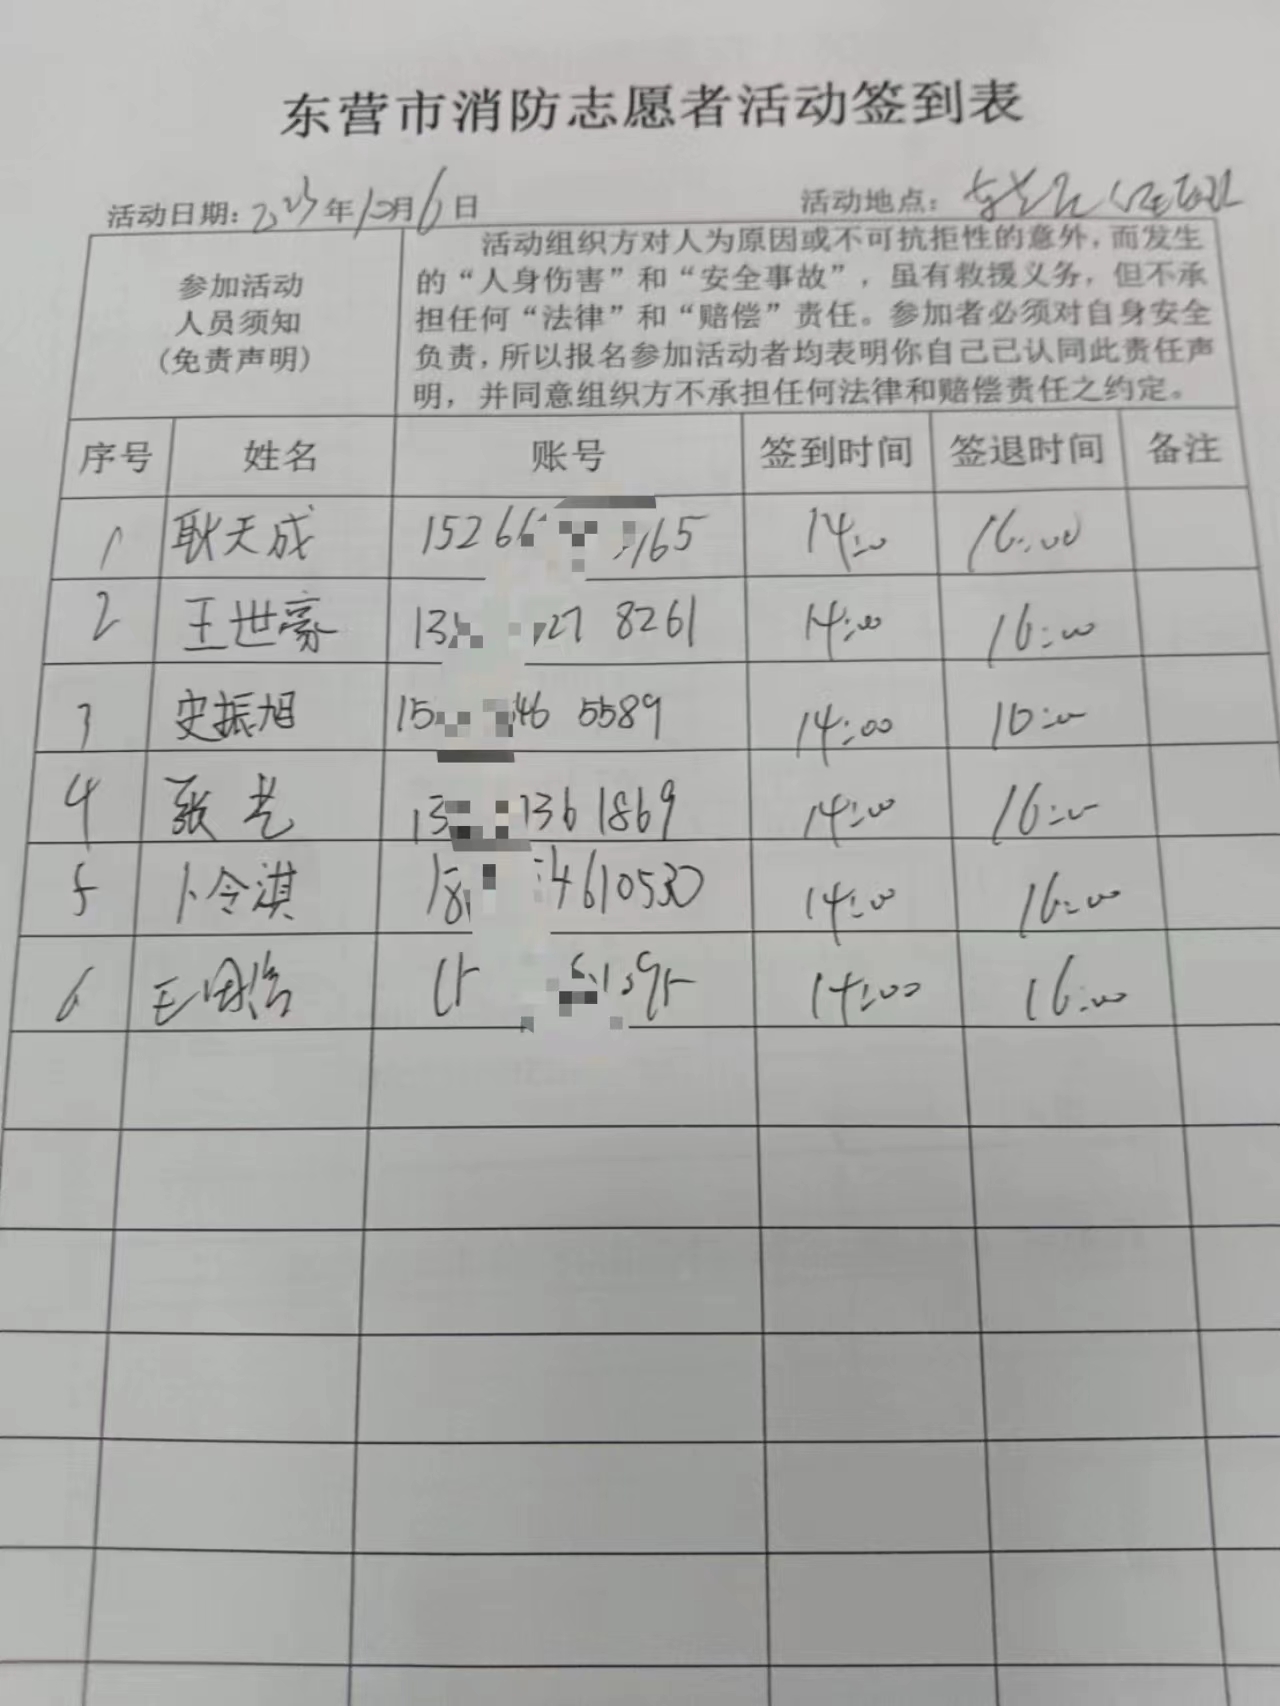 东营市消防志愿者活动签到表
活动日期: 2023年10月6日 活动地点:
参加活动
人员须知
(免责声明)
活动组织方对人为原因或不可抗拒性的意外,而发生
的“人身伤害”和“安全事故”,虽有救援义务,但不承
担任何“法律”和“赔偿”责任。参加者必须对自身安全
负责,所以报名参加活动者均表明你自己已认同此责任声
明,并同意组织方不承担任何法律和赔偿责任之约定。
序号 姓名 账号 签到时间 签退时间 备注
1 耿天成 15266 165 14:00 16:00
2 王世豪 13 27 8261 14:00 16:00
3 史振旭 15 46 5589 14:00 16:00
4 张艺 13 1361869 14:00 16:00
5 卜令淇 18 4610530 14:00 16:00
6 王 15 395 14:00 16:00